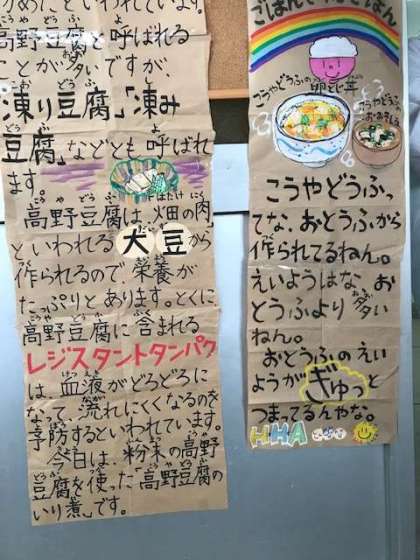 ためにといわれています。
高野豆腐と呼ばれる
ことが多いですが、
「凍り豆腐」「凍み
豆腐」などとも呼ばれ
ます。
高野豆腐は、「畑の肉」
といわれる大豆から
作られるので、栄養が
たっぷりとあります。とくに、
高野豆腐に含まれる
レジスタントタンパク
は、血液がどろどろに
なって、流れにくくなるのを
予防するといわれています。
今日は、粉末の高野
豆腐を使った「高野豆腐の
いり煮」です。
こうやどうふの卵とじ丼
こうやどうふの
おみそしる
こうやどうふっ
てな、おとうふから
作られてるねん。
えいようはな、お
とうふより多い
ねん。
おとうふのえい
ようがぎゅっと
つまってるんやな。